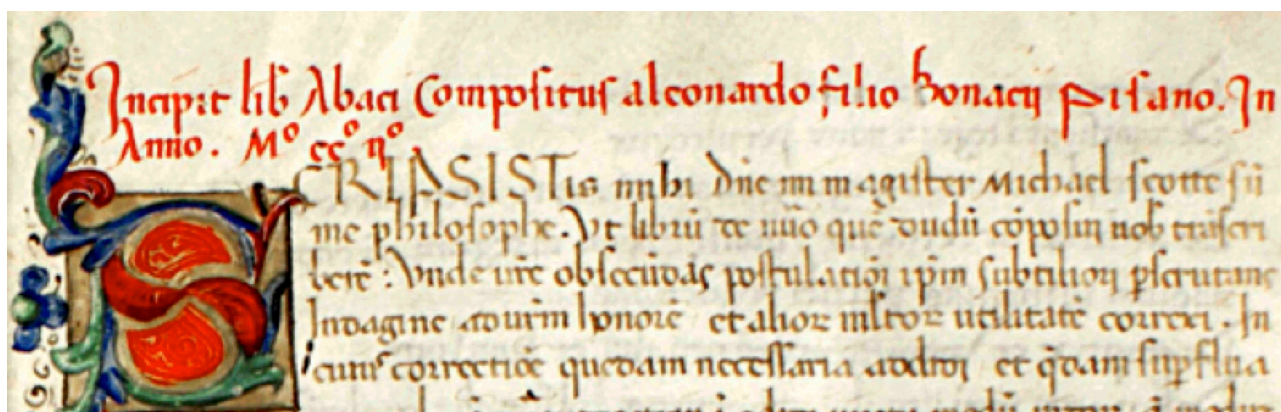 Incipit lib̅ Abaci Compositus a leonardo filio bonacij Pisano. In
Anno. Mº ccº ijº.
SCRIPSISTis mihi dn̅e mi magister Michael scotte sū
me philosophe. Ut librū de nūo quē dudū cōposui nob̅ trāscri
berē: Unde vr̅e obsecūdās postulatiōi ip̅m subtiliori p̱scrutans
Indagine ad vr̅m honorē et alioꝝ ml̅toꝝ utilitatē correxi. In
cuius correctiōe quedam necessaria addidi et q̅dam sup̱flua